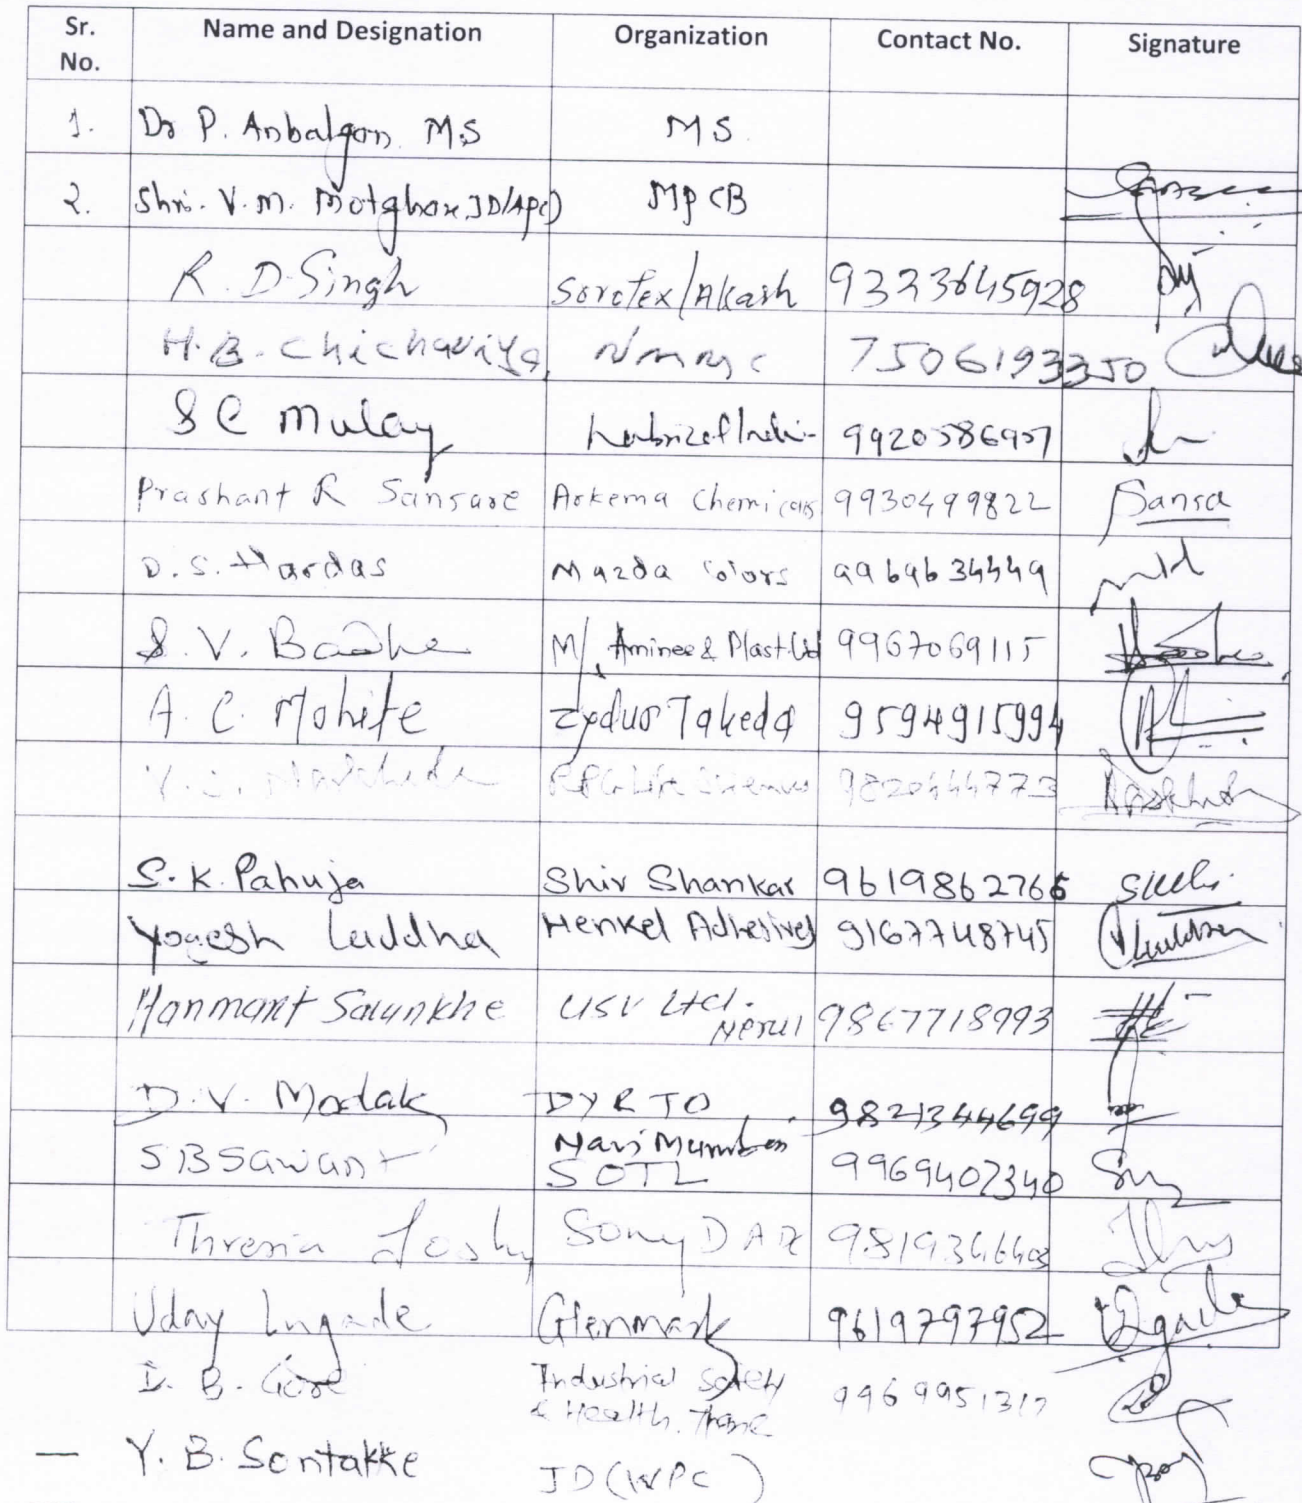 Sr. No. Name and Designation Organization Contact No. Signature
1. Dr P. Anbalgan. M.S MS.
2. Shri. V.M. Motghare JD/APC) MPCB
R. D. Singh Sorotex/Akash 9323645928
H.B. Chichaviya NMMC 7506193350
S C Mulay Lubrizol India 9920586907
Prashant R Sansare Arkema Chemicals 9930499822 Sansa
D. S. Hardas Mazda Colors 9969634449
S. V. Badhe M/ Aminee & Plast. Ltd 9967069115
A. C. Mohite Zydus Takeda 9594915994
RPG Life Sciences 9820444773
S. K. Pahuja Shiv Shankar 9619862766
Yogesh Laddha Henkel Adhesives 9167748745
Hanmant Salunkhe USV Ltd. Nerul 9867718993
D. V. Modak DY RTO Navi Mumbai 9821344699
S B Sawant SOTL 9969407340
Thresia Joshy Sony DADC
Uday Ingade Glenmark 9619797952
D. B. Gore Industrial Safety & Health. Thane 9969951317
— Y. B. Sontakke JD (WPC)